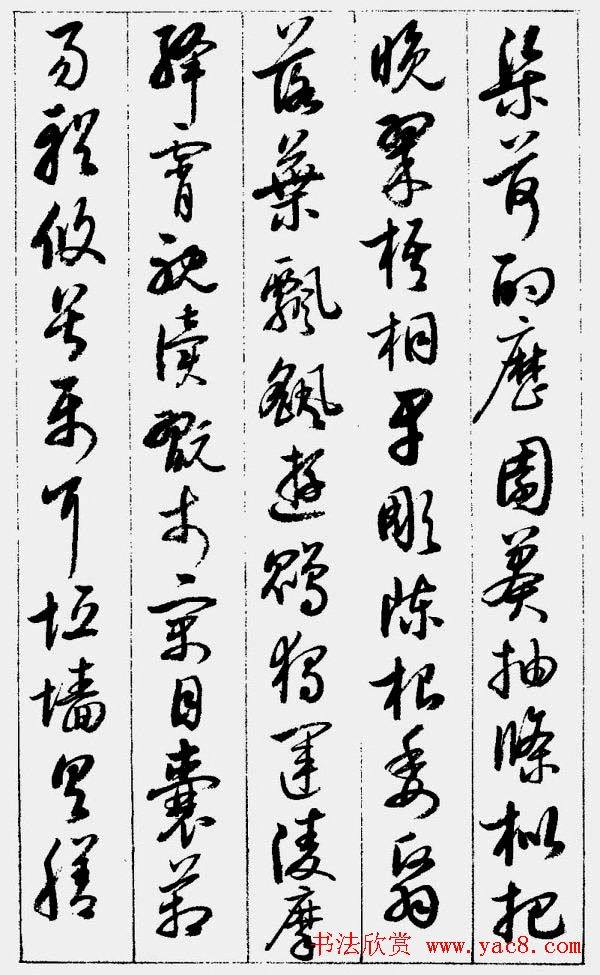 渠荷的歷園莽抽條枇杷
晚翠梧桐早彫陳根委翳
落葉飄颻遊鵾獨運凌摩
絳霄耽讀翫市寓目囊箱
易輶攸畏屬耳垣墻具膳
书法欣赏 www.yac8.com